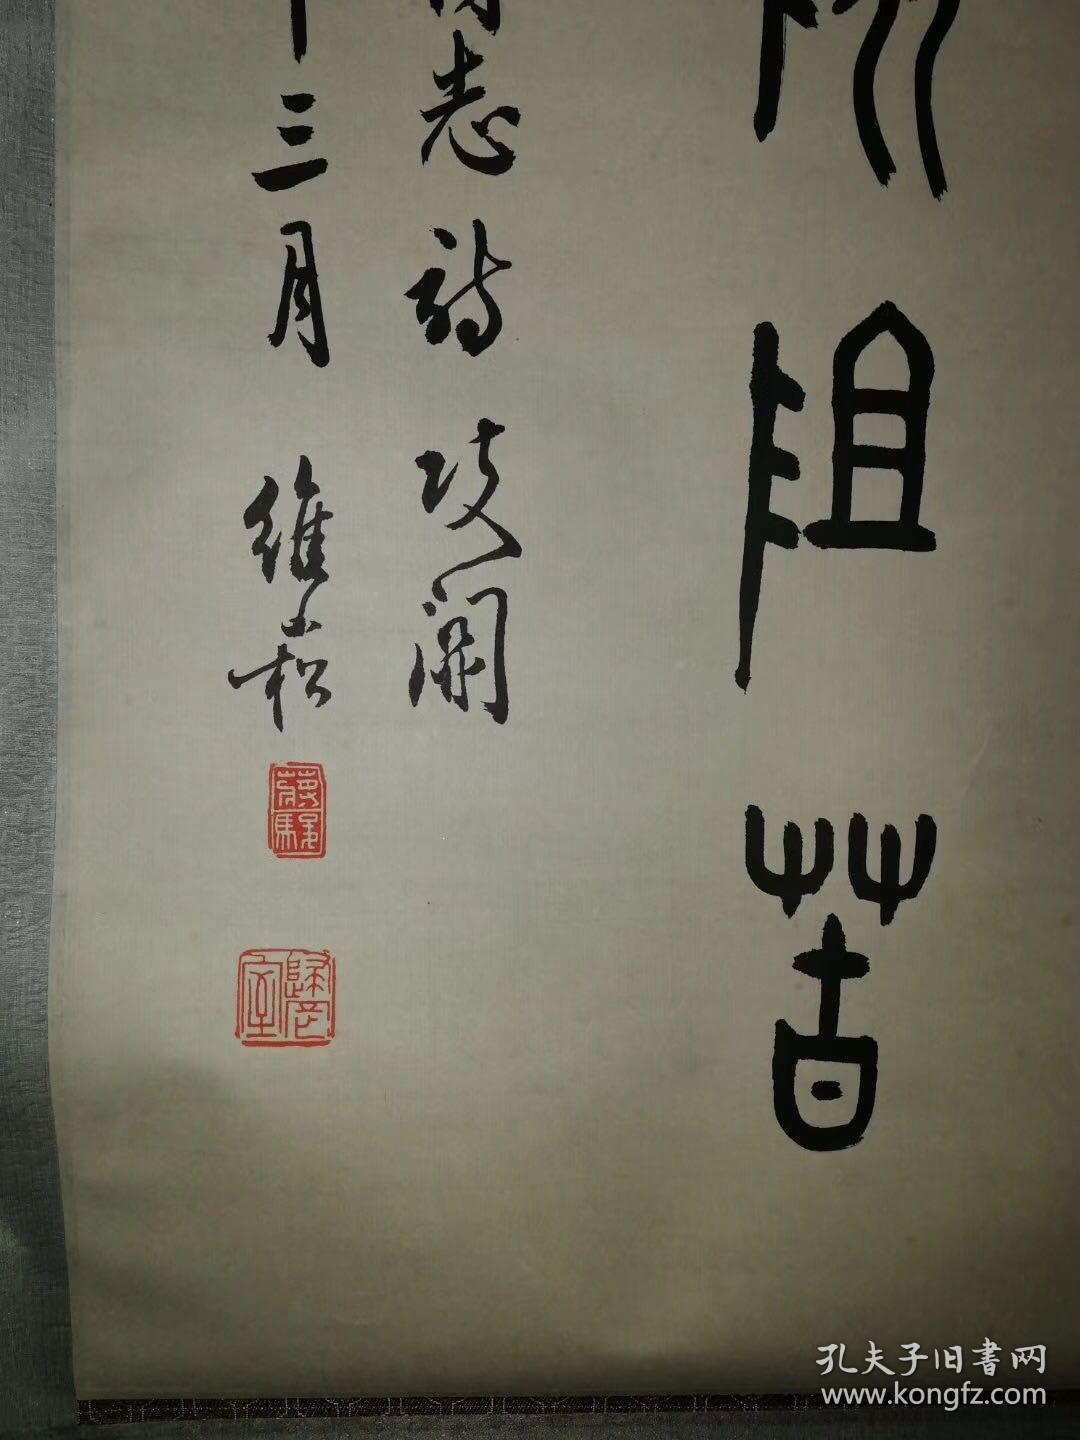 險阻苦
志詩攻關
三月 維崧
孔夫子旧書网
www.kongfz.com